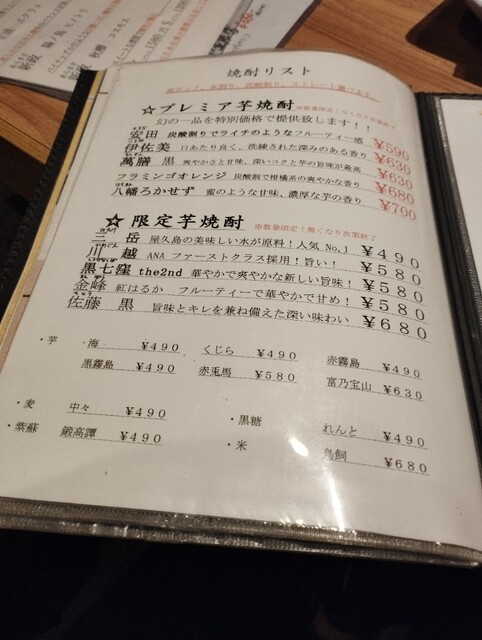 焼酎リスト
☆プレミア芋焼酎 ※数量限定!なくなり次第終了
幻の一品を特別価格で提供致します!!
安田 炭酸割りでライチのようなフルーティー感 ¥590
伊佐美 口あたり良く、洗練された深みのある香り ¥630
萬膳 黒 爽やかさと甘味、深いコクと芋の旨味が最高 ¥630
フラミンゴオレンジ 炭酸割で柑橘系の爽やかな香り ¥680
八幡ろかせず 蜜のような甘味、濃厚な芋の香り ¥700
☆限定芋焼酎 ※数量限定!無くなり次第終了
三岳 屋久島の美味しい水が原料!人気No,1 ¥490
川越 ANAファーストクラス採用!旨い! ¥580
黒七窪 the2nd 華やかで爽やかな新しい旨味! ¥580
金峰 紅はるか フルーティーで華やかで甘め! ¥580
佐藤 黒 旨味とキレを兼ね備えた深い味わい ¥680
・芋 海 ¥490 くじら ¥490 赤霧島 ¥490
黒霧島 ¥490 赤兎馬 ¥580 富乃宝山 ¥630
・麦 中々 ¥490 ・黒糖 れんと ¥490
・紫蘇 鍛高譚 ¥490 ・米 鳥飼 ¥680